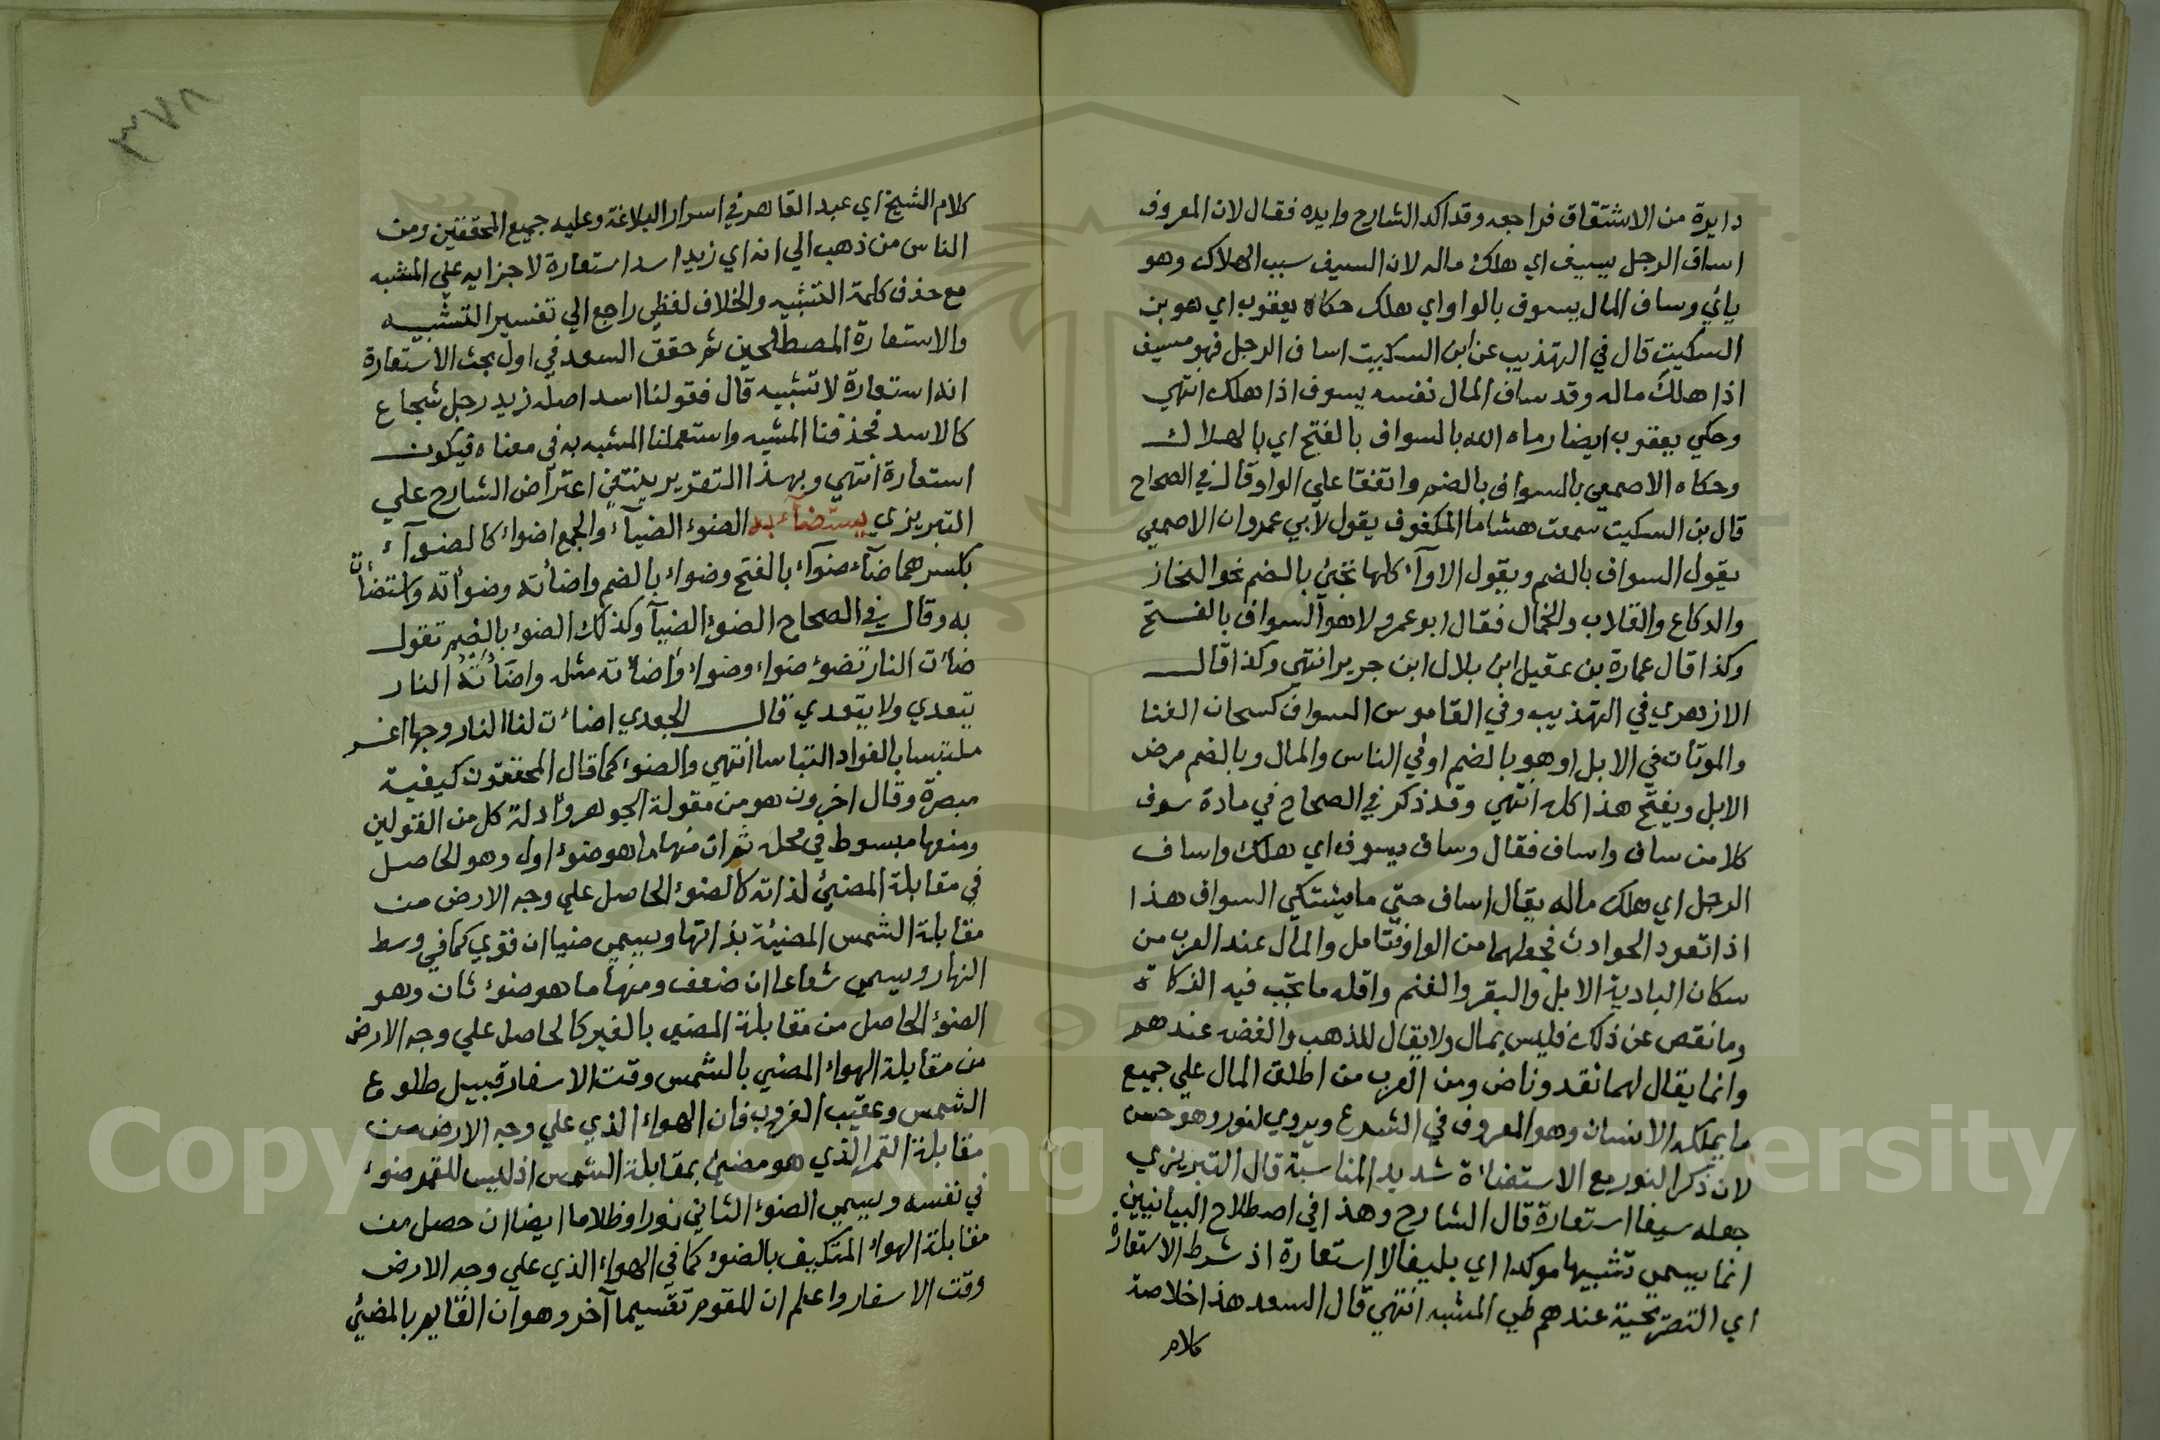 دايرة من الاشتقاق فراجعه وقد اكد الشارح وايده فقال لان المعروف
اساف الرجل يسيف اي هلك ماله لان السيف سبب الهلاك وهو
يائي وساف المال يسوف بالواو اي هلك حكاه يعقوب اي هو بن
السكيت قال في التهذيب عن ابن السكيت اساف الرجل فهو مسيف
اذا هلك ماله وقد ساف المال نفسه يسوف اذا هلك انتهي
وحكي يعقوب ايضا رماه الله بالسواف بالفتح اي بالهلاك
وحكاه الاصمعي بالسواف بالضم واتفقا علي الواو قال في الصحاح
قال بن السكيت سمعت هشاما المكفوف يقول لابي عمرو ان الاصمعي
يقول السواف بالضم ويقول الادوآء كلها تجئ بالضم نحو النحاز
والدكاع والقلاب والخمال فقال ابو عمرو لا هو السواف بالفتح
وكذا قال عمارة بن عقيل ابن بلال ابن جرير انتهي وكذا قال
الازهري في التهذيب وفي القاموس السواف كسحاب الفنا
والموتان في الابل او هو بالضم او في الناس والمال وبالضم مرض
الابل ويفتح هذا كله انتهي وقد ذكر في الصحاح في مادة سوف
كلا من ساف واساف فقال وساف يسوف اي هلك واساف
الرجل اي هلك ماله يقال اساف حتي ما يشتكي السواف هذا
اذا تعود الحوادث فجعلهما من الواو فتامل والمال عند العرب من
سكان البادية الابل والبقر والغنم واقله ما تجب فيه الزكاة
وما نقص عن ذلك فليس بمال ولا يقال للذهب والفضه عندهم
وانما يقال لهما نقد وناض ومن العرب من اطلق المال علي جميع
ما يملكه الانسان وهو المعروف في الشرع ويروي لنور وهو حسن
لان ذكر النور مع الاستضاءة شديد المناسبة قال التبريزي
جعله سيفا استعارة قال الشارح وهذا في اصطلاح البيانيين
انما يسمي تشبيها موكدا اي بليغا لا استعارة اذ شرط الاستعارة
اي التصريحية عندهم طي المشبه انتهي قال السعد هذا خلاصة
كلام
٣٧٨
كلام الشيخ اي عبد القاهر في اسرار البلاغة وعليه جميع المحققين ومن
الناس من ذهب الي انه اي زيد اسد استعارة لاجرايه علي المشبه
مع حذف كلمة التشبيه والخلاف لفظي راجع الي تفسير التشبيه
والاستعارة المصطلحين ثم حقق السعد في اول بحث الاستعارة
انه استعارة لا تشبيه قال فقولنا اسد اصله زيد رجل شجاع
كالاسد فحذفنا المشبه واستعملنا المشبه به في معناه فيكون
استعارة انتهي وبهذا التقرير ينتفي اعتراض الشارح علي
التبريزي يستضآء به الضوء الضيآء والجمع اضواء كالضوآء
بكسرهما ضآء ضوآء بالفتح وضواء بالضم واضائه وضوأته واستضأت
به وقال في الصحاح الضوء الضيآ وكذلك الضوء بالضم تقول
ضاءت النار تضوء ضواء وضواء واضاءت مثله واضآءته النار
يتعدي ولا يتعدي قال الجعدي اضاءت لنا النار وجها اغر
ملتبسا بالفواد التباسا انتهي والضوء كما قال المحققون كيفية
مبصرة وقال اخرون هو من مقولة الجوهر وادلة كل من القولين
ومنعها مبسوط في محله ثم ان منها ما هو ضوء اول وهو الحاصل
في مقابلة المضيئ لذاته كالضوء الحاصل علي وجه الارض من
مقابلة الشمس المضيئة بذاتها ويسمي ضيا ان قوي كما في وسط
النهار ويسمي شعاعا ان ضعف ومنها ما هو ضوء ثان وهو
الضوء الحاصل من مقابلة المضي بالغير كالحاصل علي وجه الارض
من مقابلة الهواء المضي بالشمس وقت الاسفار قبيل طلوع
الشمس وعقيب الغروب فان الهواء الذي علي وجه الارض من
مقابلة القمر الذي هو مضيئ بمقابلة الشمس اذ ليس للقمر ضوء
في نفسه ويسمي الضوء الثاني نورا وظلاما ايضا ان حصل من
مقابلة الهواء المتكيف بالضوء كما في الهواء الذي علي وجه الارض
وقت الاسفار واعلم ان للقوم تقسيما آخر وهو ان القايم بالمضيئ
Copyright © King Saud University